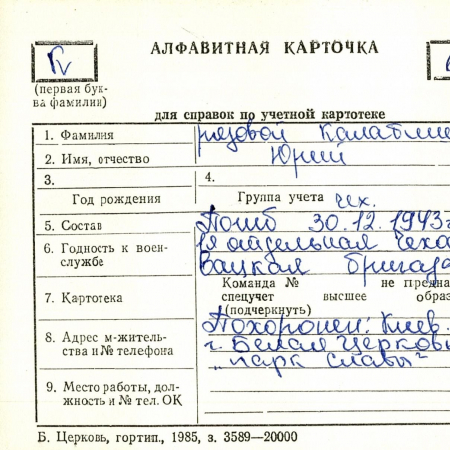 АЛФАВИТНАЯ КАРТОЧКА
(первая бук-
ва фамилии)
для справок по учетной картотеке
1. Фамилия рядовой
2. Имя, отчество Юрий
3. 4.
Год рождения Группа учета чех.
5. Состав Погиб 30.12.1943г
6. Годность к воен-
службе
1я отдельная чехо
вацкая бригада
Команда № не предна
7. Картотека спецучет высшее обра
(подчеркнуть)
8. Адрес м-житель-
ства и № телефона
Похоронен: Киев.
г. Белая Церковь
„парк Славы"
9. Место работы, дол-
жность и № тел. ОК
Б. Церковь, гортип., 1985, з. 3589—20000